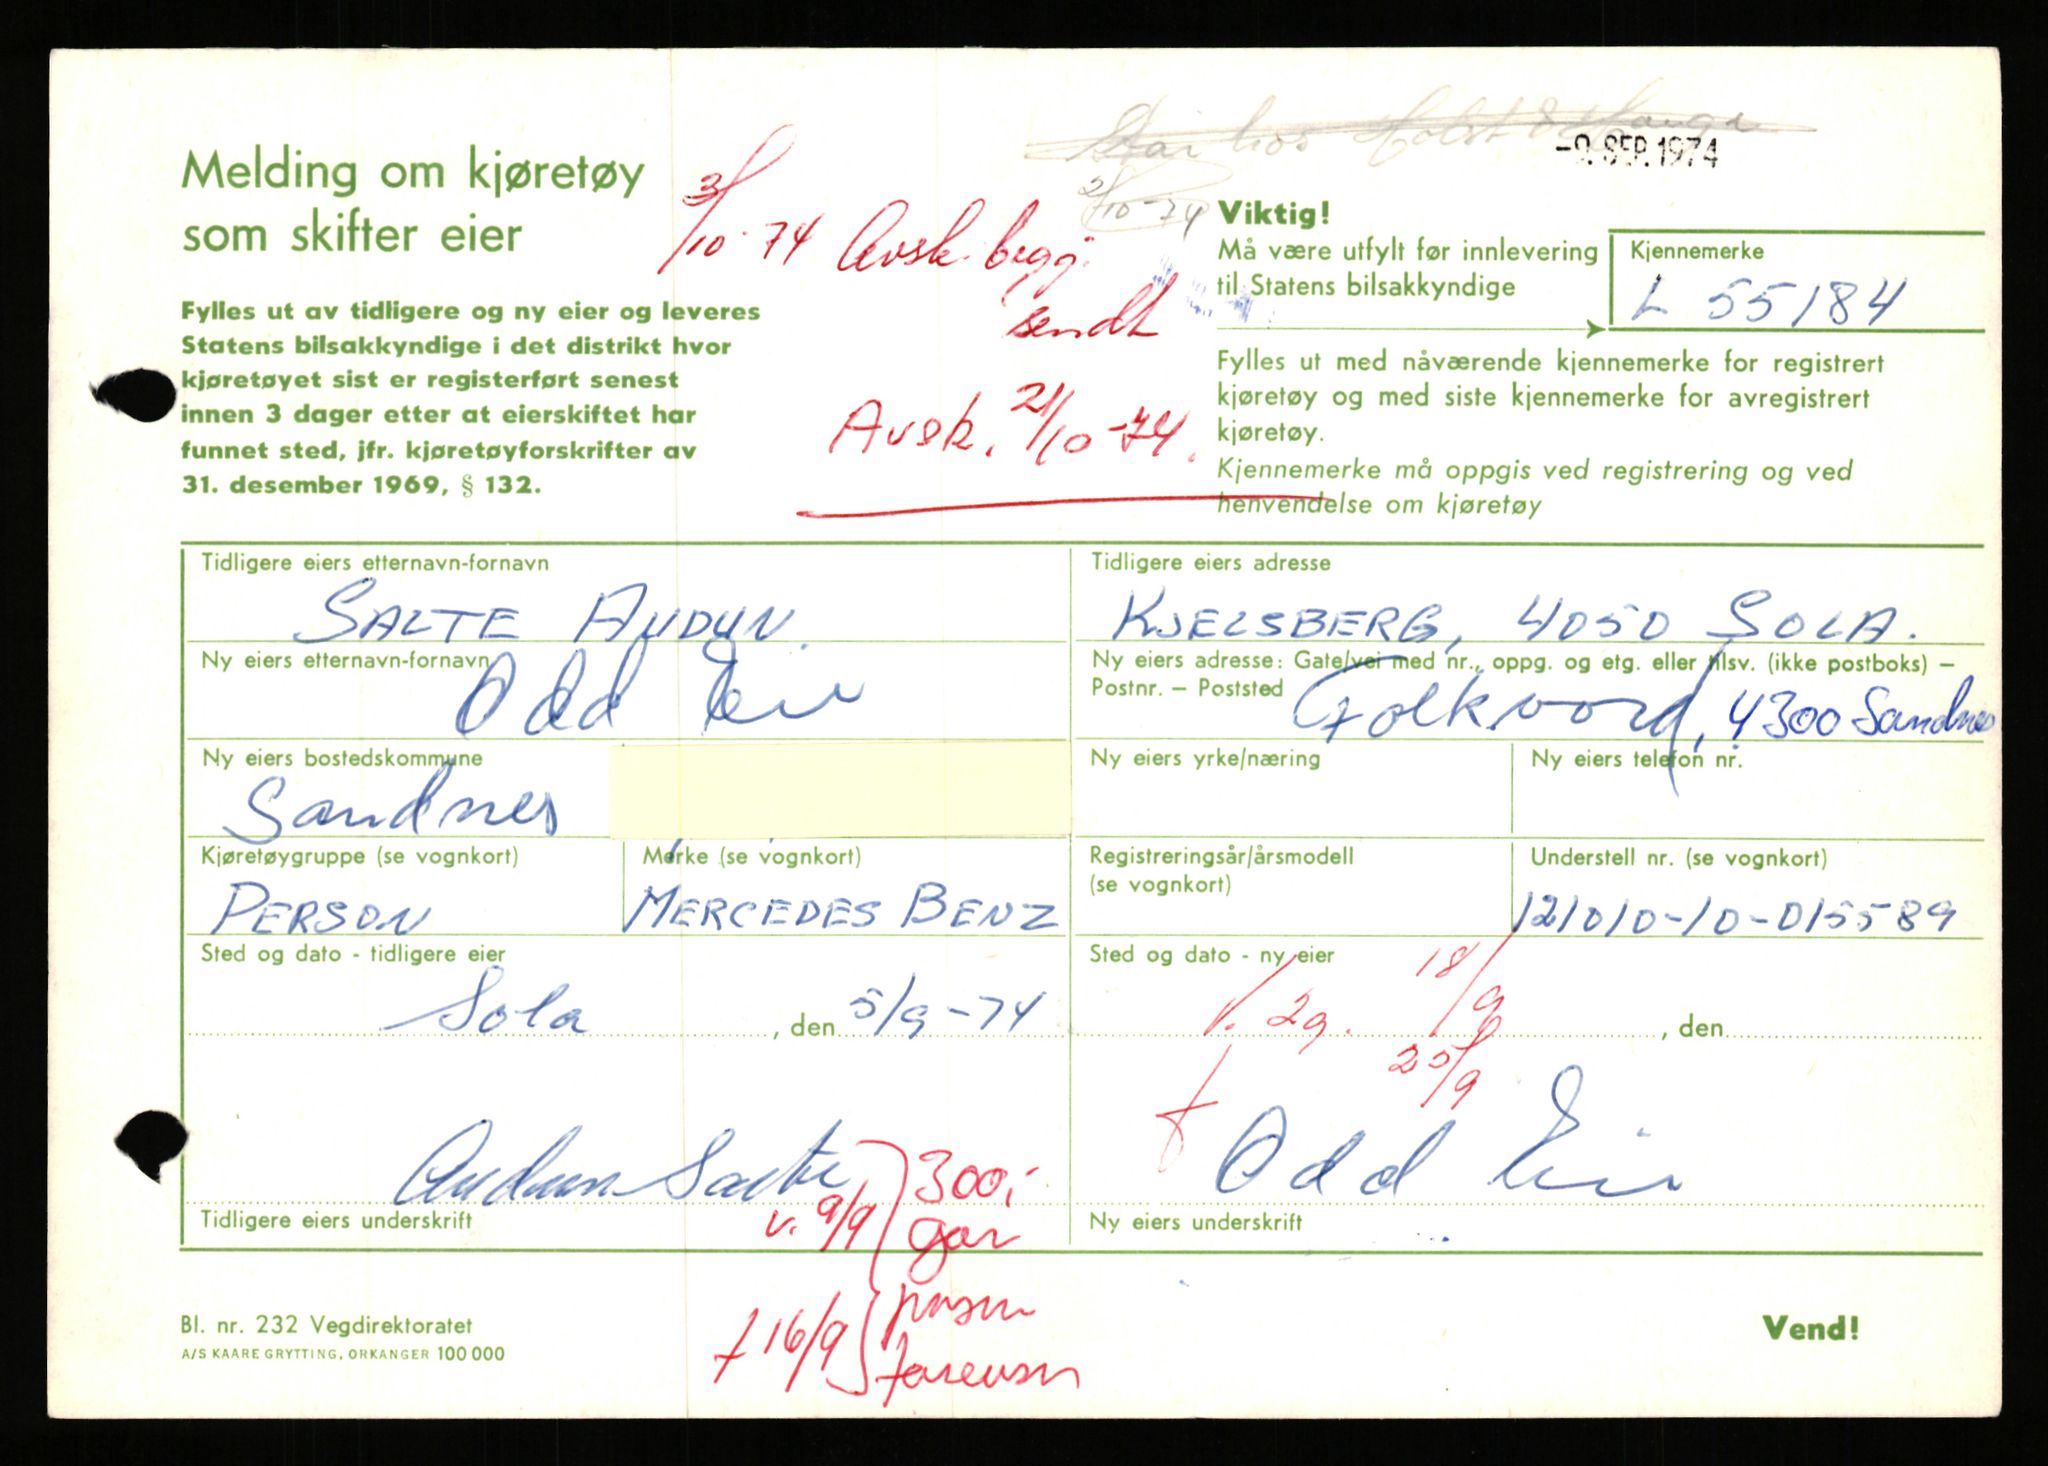 Står hos Holst &
-9. SEP. 1974
2/10-74
Melding om kjøretøy
som skifter eier
3/10-74 Avsk. begj.
sendt
Avsk. 21/10-74.
Fylles ut av tidligere og ny eier og leveres
Statens bilsakkyndige i det distrikt hvor
kjøretøyet sist er registerført senest
innen 3 dager etter at eierskiftet har
funnet sted, jfr. kjøretøyforskrifter av
31. desember 1969, § 132.
Viktig!
Må være utfylt før innlevering
til Statens bilsakkyndige
Kjennemerke
L 55184
Fylles ut med nåværende kjennemerke for registrert
kjøretøy og med siste kjennemerke for avregistrert
kjøretøy.
Kjennemerke må oppgis ved registrering og ved
henvendelse om kjøretøy
Tidligere eiers etternavn-fornavn
SALTE AUDUN.
Tidligere eiers adresse
KJELSBERG, 4050 SOLA.
Ny eiers etternavn-fornavn
Odd Eie
Ny eiers adresse: Gate/vei med nr., oppg. og etg. eller tilsv. (ikke postboks) –
Postnr. – Poststed
Folkvord, 4300 Sandnes
Ny eiers bostedskommune
Sandnes
Ny eiers yrke/næring
Ny eiers telefon nr.
Kjøretøygruppe (se vognkort)
PERSON
Merke (se vognkort)
MERCEDES BENZ
Registreringsår/årsmodell
(se vognkort)
Understell nr. (se vognkort)
121010-10-015589
Sted og dato - tidligere eier
Sola, den 5/9-74
Sted og dato - ny eier
18/9
v. 29.
, den
25/9
Audun Salte
Tidligere eiers underskrift
Odd Eie
Ny eiers underskrift
v. 9/9
300,-
gar
f 16/9
Bl. nr. 232 Vegdirektoratet
A/S KAARE GRYTTING, ORKANGER 100 000
Vend!